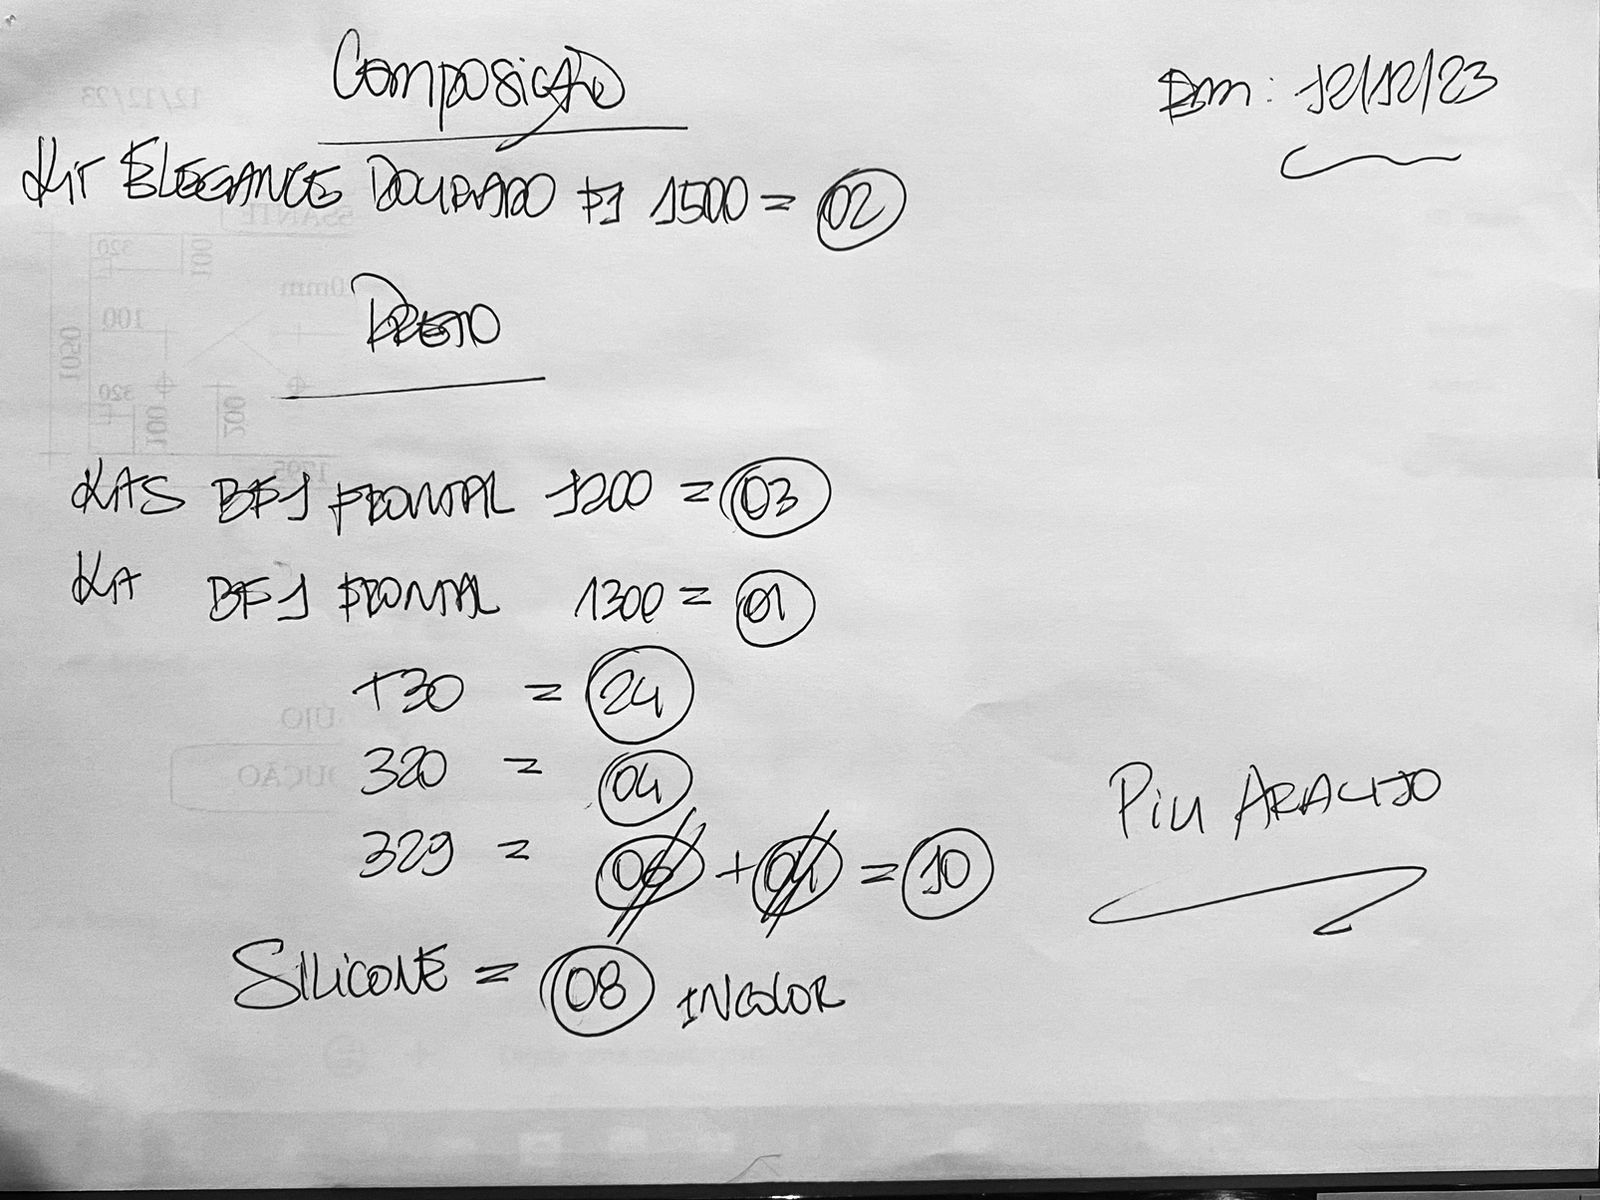 Composição
Em: 12/12/23
Kit Elegance Dourado P/ 1500 = 02
Preto
Kits BF1 Frontal 1200 = 03
Kit BF1 Frontal 1300 = 01
130 = 24
320 = 04
329 = 06 + 04 = 10
Piu Araujo
Silicone = 08 Incolor